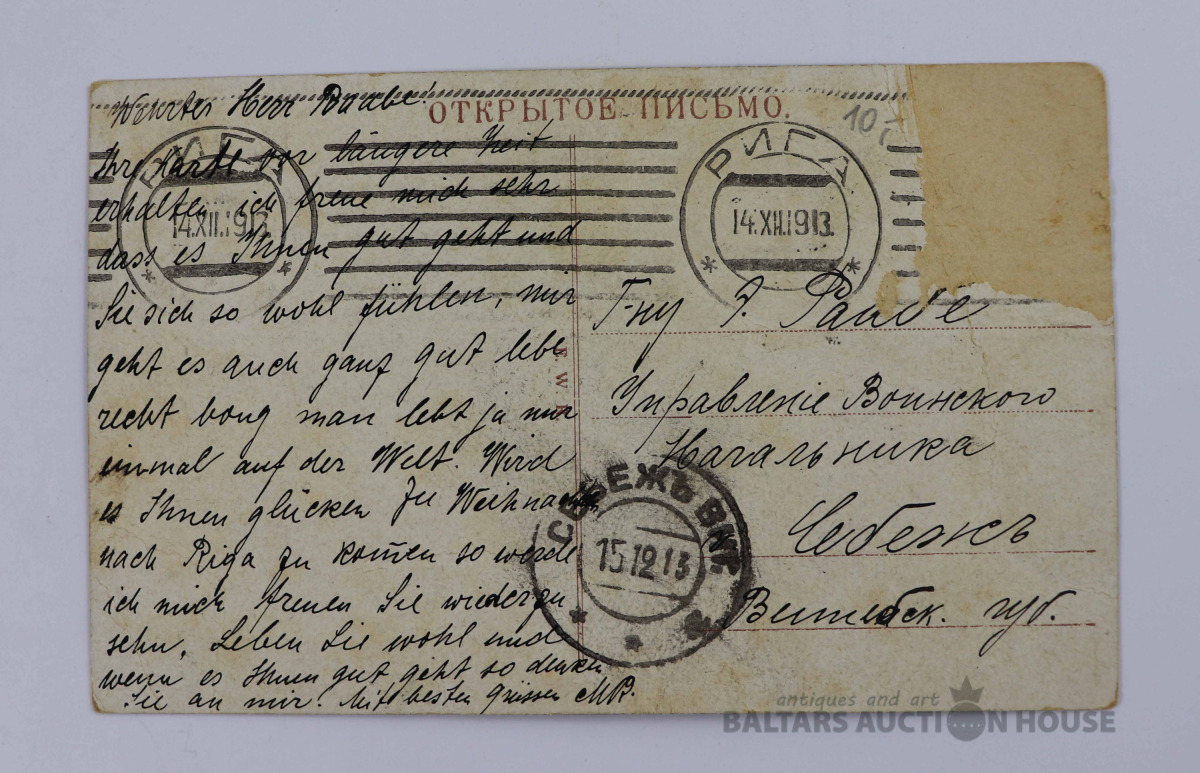 Wehrter Herr Raabe!
ОТКРЫТОЕ ПИСЬМО.
107
Ihre Karte vor längere Zeit
erhalten, ich freue mich sehr
dass es Ihnen gut geht und
Sie sich so wohl fühlen, mir
geht es auch ganz gut lebe
recht bong man lebt ja nur
einmal auf der Welt. Wird
es Ihnen glücken zu Weihnacht
nach Riga zu komen so werde
ich mich freuen Sie wiederzu
sehn. Leben Sie wohl und
wenn es Ihnen gut geht so denken
Sie an mir. Mit besten Grüssen MR.
РИГА
14.XII.1913
РИГА
14.XII.1913.
Г-ну Э. Раабе
Управленіе Воинского
Начальника
Себежъ
Витебск. губ.
СЕБЕЖЪ ВИТ.
15 12 13
antiques and art
BALTARS AUCTION HOUSE